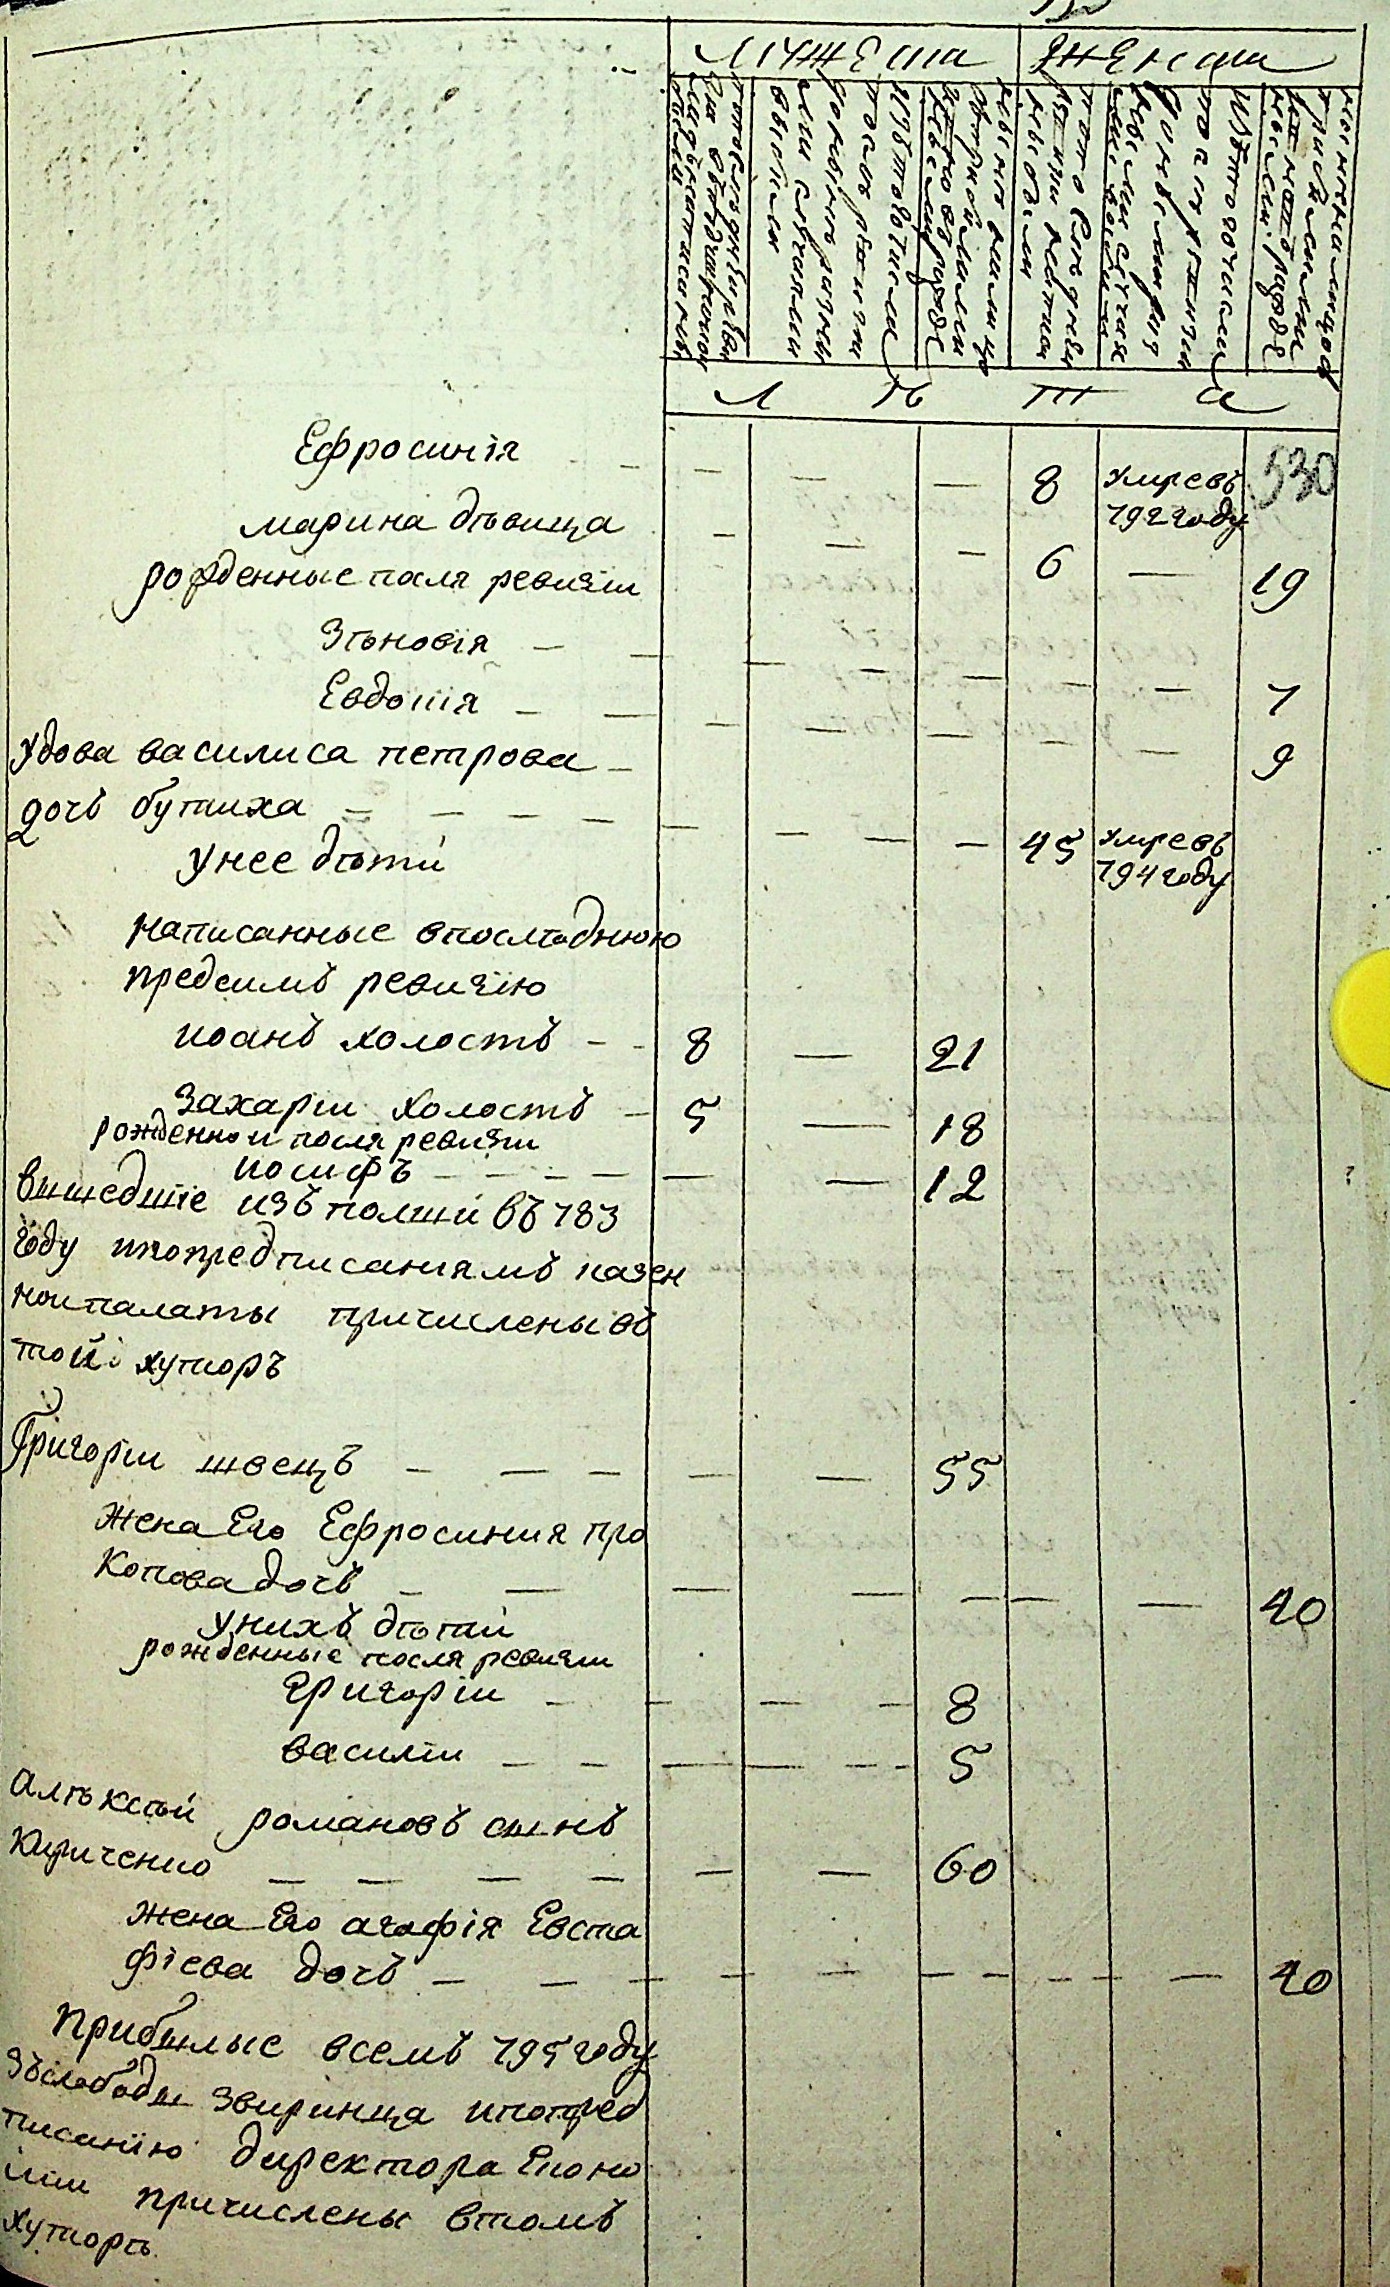 мужеска женска
Л ѣ т а
530
Ефросинія - - - - - 8 умре въ
792 году
марина дѣвица - - - 6 — 19
рожденные посля ревизіи
Зѣновія — — — - - - - 7
Евдокія - — - — — - - 9
удова василиса петрова
дочь бутиха - - - - - - - - 45 умре въ
794 году
у нее дѣти
написанные в послѣднюю
пред симъ ревизію
иоанъ холостъ - - 8 — 21
Захарїи холостъ - 5 — 18
рожденнои посля ревизїи
иосифъ - - - - — — 12
вышедшїе изъ полши въ 783
году и по предписаниямъ казен
ной палаты причислены въ
той хуторъ
Григорїи швецъ - — - - — 55
жена Его Ефросиния про
копова дочь - — — — - — — 40
у нихъ дѣтей
рожденные посля ревизїи
Григорїи - - - - 8
василїи - - — — - - 5
алѣксѣй романовъ сынъ
Кириченко — — — — - — 60
жена Его агафїя Евста
фїева дочь - - - - — — - - - - — 40
прибылые в семъ 795 году
зъ слободы звиринца и по пред
писанїю директора Еконо
мїи причислены в томъ
хуторѣ